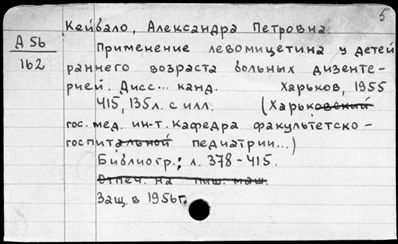 5
Кейвало, Александра Петровна
А 56
162
Применение левомицетина у детей
раннего возраста больных дизенте-
рией. Дисс... канд. Харьков, 1955
415, 135л. с илл. (Харьковский
гос. мед. ин-т. Кафедра факультетско-
госпитальной педиатрии...)
Библиогр.: л. 378-415.
Отпеч. на пиш. маш.
Защ. в 1956г.